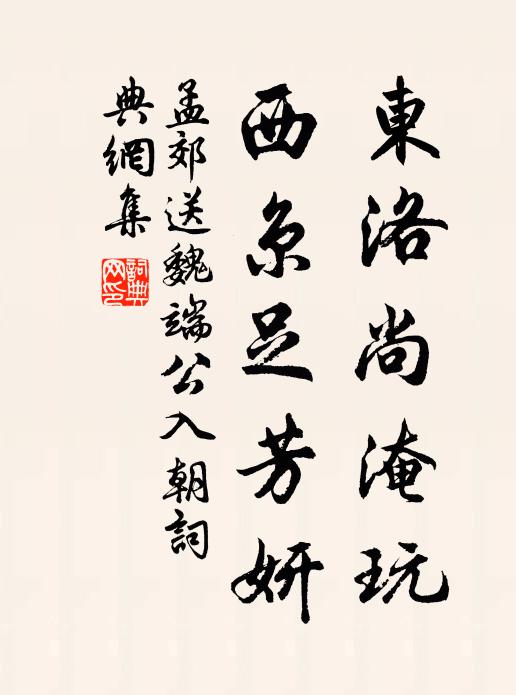 東洛尚淹玩
西京足芳妍
孟郊送魏端公入朝詞
典網集
詞典
网印